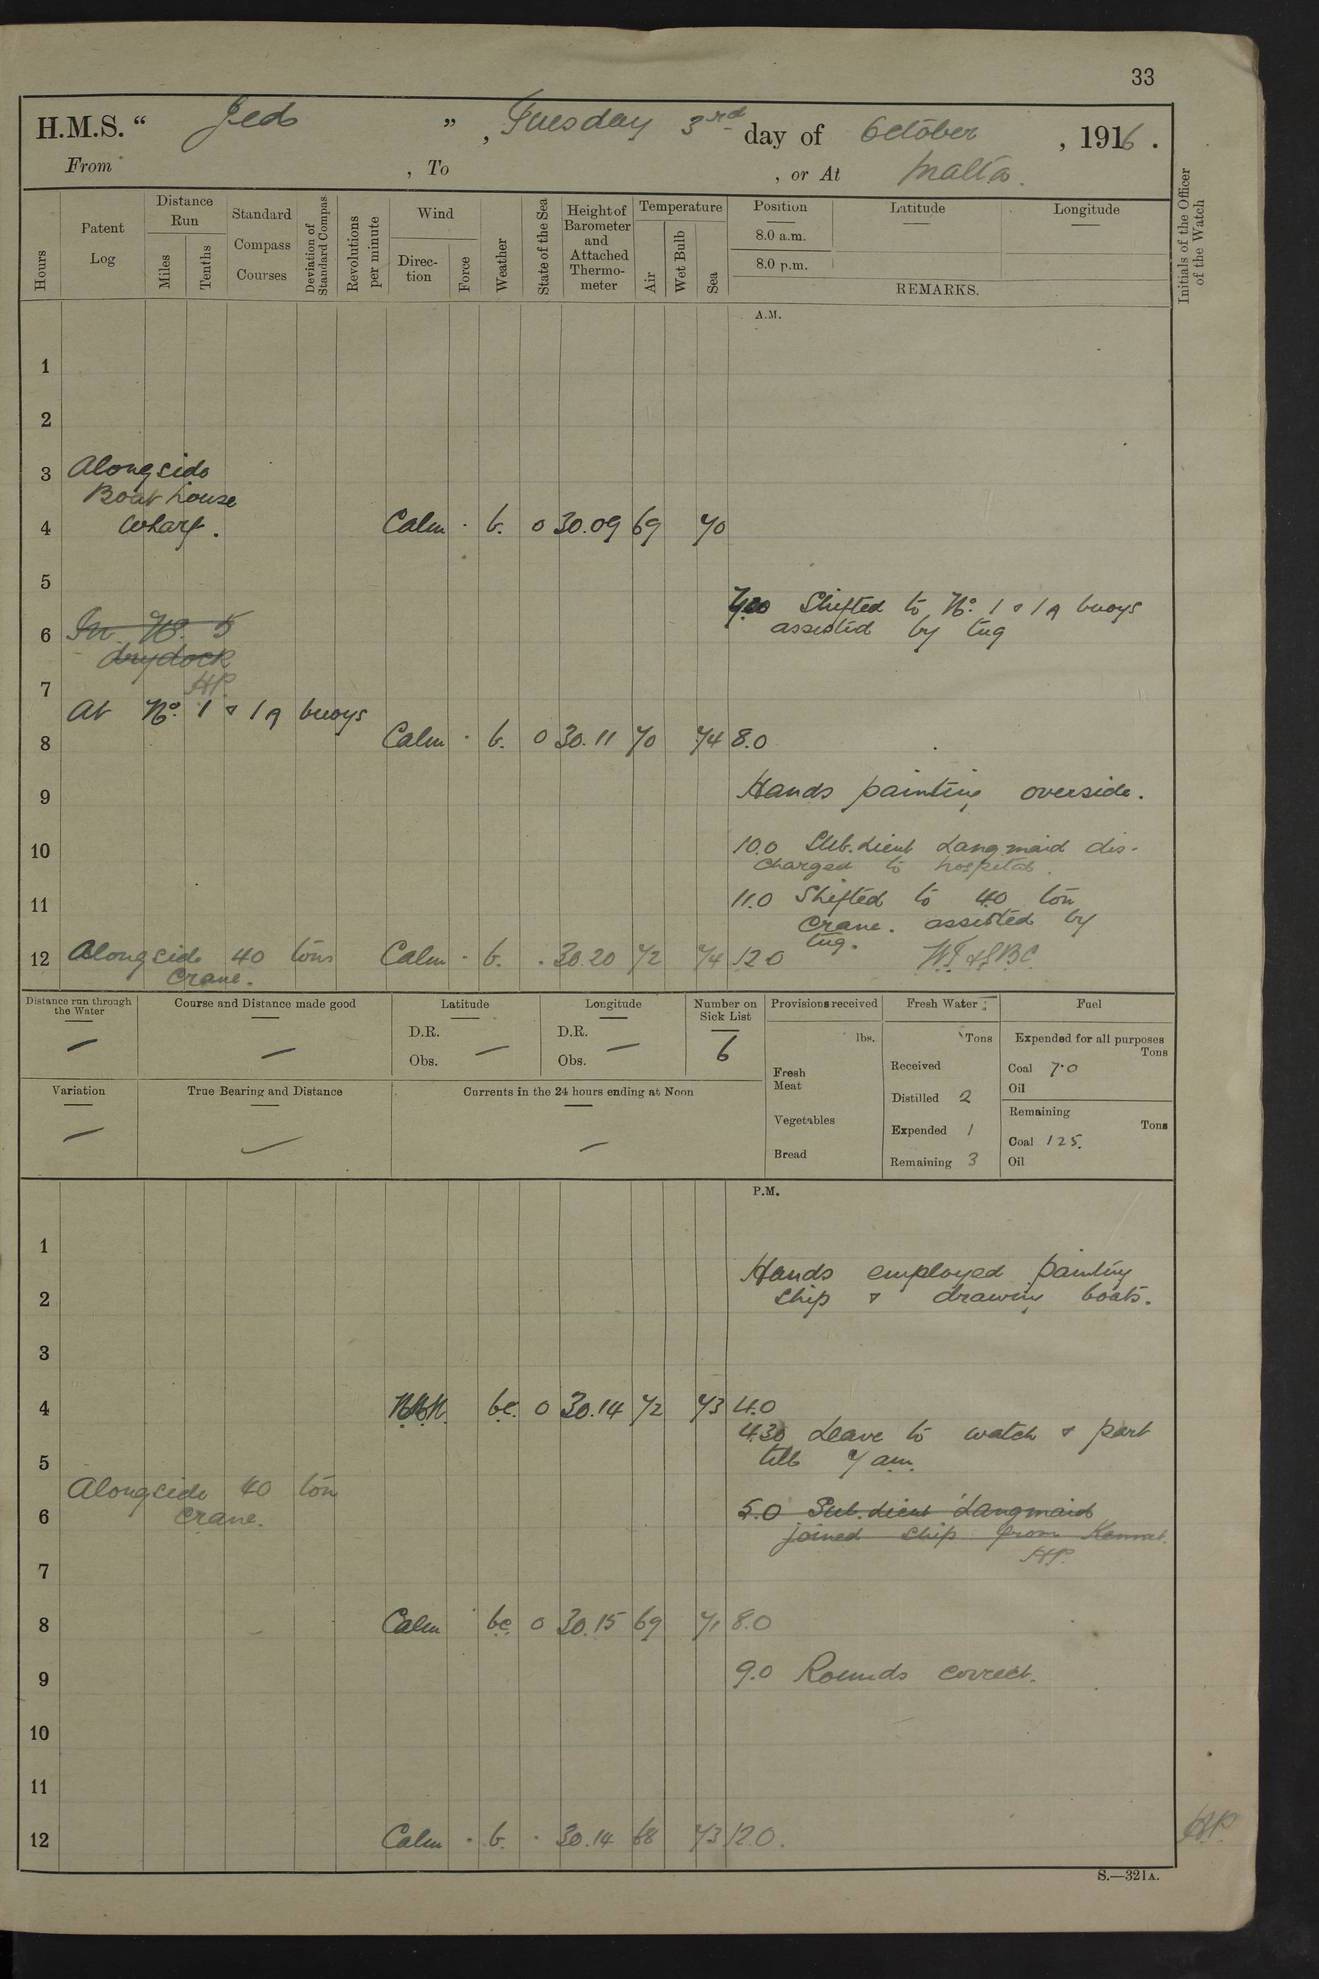 33
H.M.S. “ Jed ” , Tuesday 3rd day of October , 1916 .
From , To , or At Malta.
Hours
Patent Log
Distance Run
Miles
Tenths
Standard Compass Courses
Deviation of Standard Compas
Revolutions per minute
Wind
Direc-tion
Force
Weather
State of the Sea
Height of Barometer and Attached Thermo-meter
Temperature
Air
Wet Bulb
Sea
Position
Latitude
Longitude
8.0 a.m.
8.0 p.m.
REMARKS.
Initials of the Officer of the Watch
A.M.
1
2
3 Alongside
Boat house
4 Wharf. Calm . b. 0 30.09 69 70
5
7.20 Shifted to No. 1 & 1A buoys
assisted by tug
6 In No. 5
drydock
HP.
7
At No. 1 & 1A buoys
8 Calm . b. 0 30.11 70 74 8.0
9 Hands painting overside.
10 10.0 Sub. Lieut Langmaid dis-
charged to hospital.
11 11.0 Shifted to 40 ton
crane. assisted by
tug.
12 Alongside 40 tons Calm . b. . 30.20 72 74 12.0
crane.
Distance run through the Water
Course and Distance made good
Latitude
D.R.
Obs.
Longitude
D.R.
Obs.
Number on Sick List
6
Provisions received
lbs.
Fresh Meat
Vegetables
Bread
Fresh Water
Tons
Received
Distilled 2
Expended 1
Remaining 3
Fuel
Expended for all purposes
Tons
Coal 7.0
Oil
Remaining
Tons
Coal 125.
Oil
Variation
True Bearing and Distance
Currents in the 24 hours ending at Noon
P.M.
1
Hands employed painting
2 ship & drawing boats.
3
4 bc. 0 30.14 72 73 4.0
4.30 Leave to watch & part
5 till 7 am.
Alongside 40 ton
6 crane. 5.0 Sub. Lieut Langmaid
joined ship from
HP.
7
8 Calm bc. 0 30.15 69 71 8.0
9 9.0 Rounds correct.
10
11
12 Calm . b. . 30.14 68 73 12.0. HP
S.—321A.